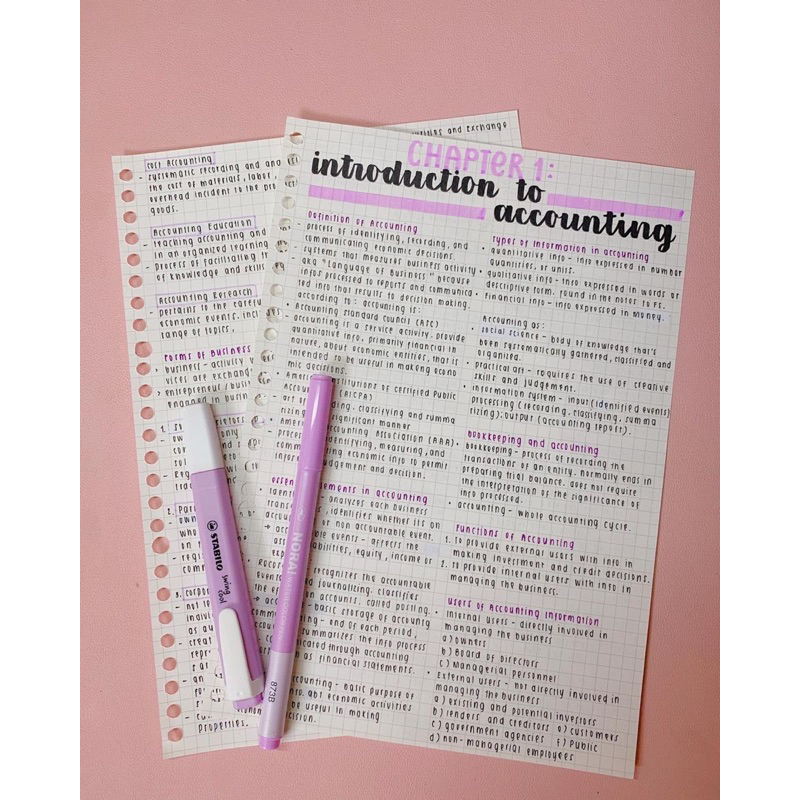 cost Accounting
- systematic recording and ana
the cost of materials, labor,
overhead incident to the pro
goods.
Accounting Education
- teaching accounting and
in an organized learning
- process of facilitating t
of knowledge and skills
Accounting Research
- pertains to the careful
economic events, inc
range of topics,
Forms of Business
business - activity w
vices are exchan
entrepreneur / busi
engaged in busin
and exchange
CHAPTER 1:
introduction to
accounting
Definition of Accounting
- process of identifying, recording, and
communicating economic decisions.
- systems that measures business activity
aka "Language of Business" because
of processed to reports and communica
ted info that results to decision making.
according to: accounting is:
• Accounting Standard Council (ASC)
- accounting is a service activity. provide
quantitative info, primarily financial in
nature, about economic entities, that is
intended to be useful in making econo
mic decisions.
• Ameri titutions of certified Public
Acco (AICPA)
- art o ding, classifying and summa
rizing significant manner
• Ameri Accounting Association (AAA)
- process identifying, measuring, and
comm economic info to permit
judgement and decision.
essen ements in accounting
identi - analyzes each business
trans identifies whether its an
accou or non accountable event.
able events - affects the
abilities, equity, income or
recognizes the accountable
journalizing. classifies
accounts. called posting.
- basic storage of accounts
ting - end of each period,
summarizes the info process
icated through accounting
as financial statements.
accounting - basic purpose of
fo. abt economic activities
be useful in making
cision.
Types of Information in accounting
• quantitative info - info expressed in number
quantities, or units.
• qualitative info - info expressed in words or
descriptive form. found in the notes to FS.
• Financial info - info expressed in money.
Accounting as:
• social science - body of knowledge that's
been systematically gathered, classified and
organized.
• practical art - requires the use of creative
skills and judgement.
• information system - input (identified events)
processing (recording, classifying, summa
rizing); output (accounting report).
Bookkeeping and accounting
• bookkeeping - process of recording the
transactions of an entity. normally ends in
preparing trial balance. does not require
the interpretation of the significance of
info processed.
• accounting - whole accounting cycle.
Functions of Accounting
1. to provide external users with info in
making investment and credit decisions.
2. to provide internal users with info in
managing the business.
Users of Accounting Information
• Internal users - directly involved in
managing the business
a) owners
b) Board of Directors
c) Managerial personnel
• External users - not directly involved in
managing the business
a) existing and potential investors
b) lenders and creditors e) customers
c) government agencies f) Public
d) non-managerial employees
properties.
STABILO
swing
cool
NORAI
873B